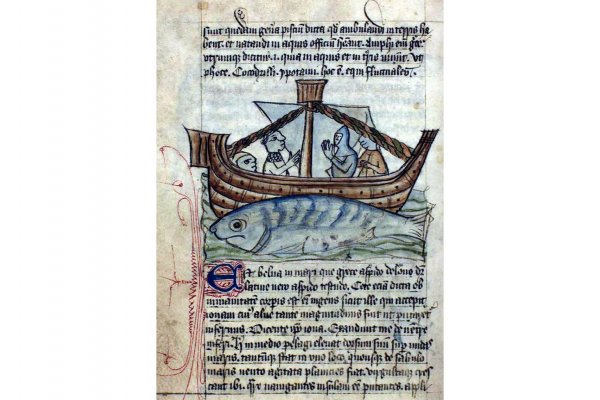 sunt quedam gen̄a pisciū dicta qd̄ ambulandi in terris ha
bent. et natandi in aquis officiū hēant. Amphi em̄
utrumque dicitur .i. quia in aquis et in t̄ris vivūt. ut
phoce. Cocodrilli. ypotami. hoc ē. equi fluctuales.
Est belua in mari que grece aspido delone dr̄
latine vero aspido testudo. Cete etiā dicta ob
inmanitatem corporis est enī ingens sicut ille qui accepit
ionam cui᾽ alvus tante magnitudinis fuit ut putaret
infernus. Dicente ipo iona. Exaudivit me de ventre
inferi. h̄ in medio pelagi elevat dorsum suū sup̄ undas
maris. tantumque stat in uno loco. quousque de sabulo
maris vento agitata planicies fiat. virgultaque cres
cant ibi. navigantes insulam eē putantes. appli